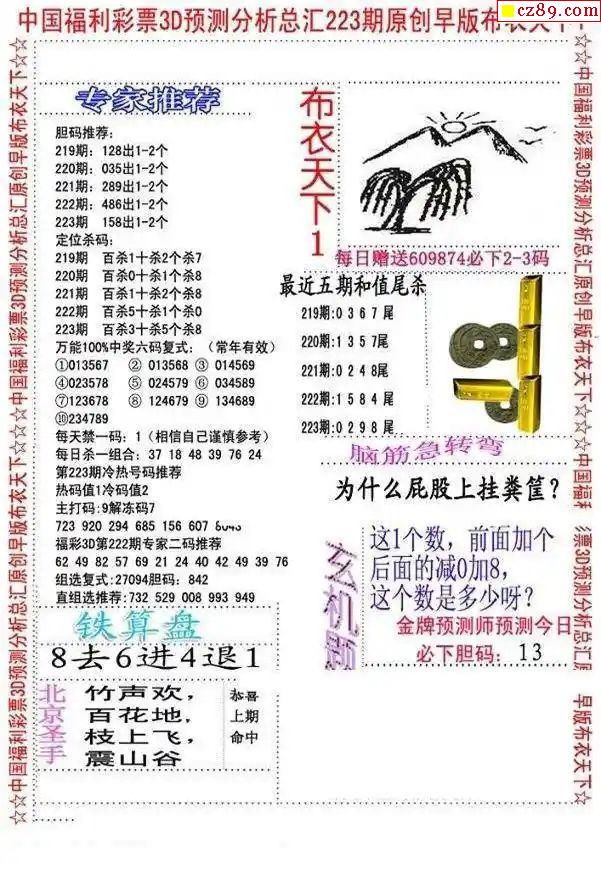 cz89.com
中国福利彩票3D预测分析总汇223期原创早版布衣天下
专家推荐
胆码推荐:
219期: 128出1-2个
220期: 035出1-2个
221期: 289出1-2个
222期: 486出1-2个
223期 158出1-2个
定位杀码:
219期 百杀1十杀2个杀7
220期 百杀0十杀1个杀8
221期 百杀1十杀2个杀8
222期 百杀5十杀1个杀0
223期 百杀3十杀5个杀8
万能100%中奖六码复式: (常年有效)
①013567 ② 013568 ③ 014569
④023578 ⑤ 024579 ⑥ 034589
⑦123678 ⑧ 124679 ⑨ 134689
⑩234789
每天禁一码: 1 (相信自己谨慎参考)
每日杀一组合: 37 18 48 39 76 24
第223期冷热号码推荐
热码值1冷码值2
主打码:9解冻码7
723 920 294 685 156 607
福彩3D第222期专家二码推荐
62 49 82 57 69 21 24 40 42 49 39 76
组选复式:27094胆码: 842
直组选推荐:732 529 008 993 949
铁算盘
8去6进4退1
北京圣手
竹声欢,
百花地,
枝上飞,
震山谷
恭喜
上期
命中
布衣天下1
每日赠送609874必下2-3码
最近五期和值尾杀
219期:0 3 6 7 尾
220期:1 3 5 7 尾
221期:0 2 4 8尾
222期:1 5 8 4 尾
223期:0 2 9 8 尾
脑筋急转弯
为什么屁股上挂粪筐?
玄机题
这1个数,前面加个
后面的减0加8,
这个数是多少呀?
金牌预测师预测今日
必下胆码: 13
☆☆中国福利彩票3D预测分析总汇原创早版布衣天下☆☆中国福利彩票3D预测分析总汇原创早版布衣天下☆☆
☆☆中国福利彩票3D预测分析总汇原创早版布衣天下☆☆中国福利
票3D预测分析总汇原
早版布衣天下☆☆